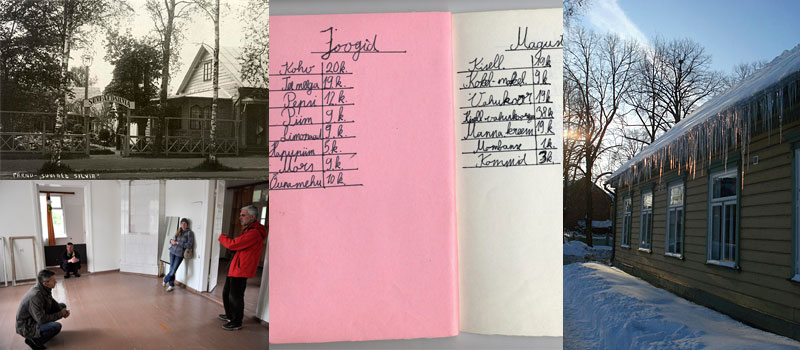 PÄRNU. "SUVITREE SILVIA"
Joogid
Kohv 20k.
Tee meega 19k.
Pepsi 12k.
Piim 9k.
Limonaad 9k.
Hapupiim 5k.
Mors 9k.
Õunamehu 10k.
Magus
Kisell 19k
Kokt-mokol 9k.
Vahukoor 19k
Kisell-vahukoorega 38k
Manna kreem 19k
Mombanse 1k.
Kommid 3k.